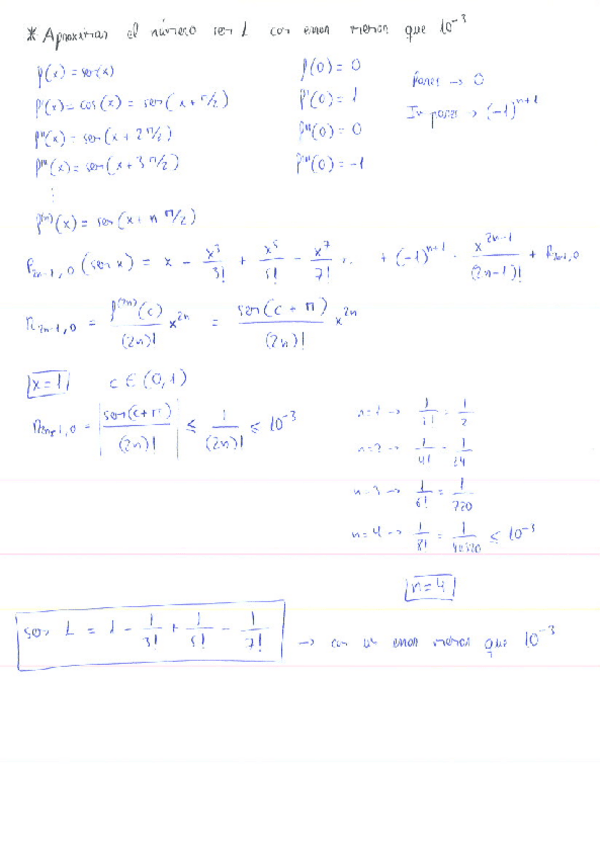 * Aproximar el número sen 1 con error menor que 10^-3
f(x) = sen(x)    f(0) = 0    Pares → 0
f'(x) = cos(x) = sen(x + π/2)    f'(0) = 1    Impares → (-1)^(n+1)
f''(x) = sen(x + 2π/2)    f''(0) = 0
f'''(x) = sen(x + 3π/2)    f'''(0) = -1
⋮
f^(n)(x) = sen(x + n π/2)
P_2n-1,0 (sen x) = x - x^3/3! + x^5/5! - x^7/7! ... + (-1)^(n+1) · x^(2n-1)/(2n-1)! + R_2n-1,0
R_2n-1,0 = f^(2n)(c)/(2n)! x^2n = sen(c + π)/(2n)! x^2n
x = 1    c ∈ (0,1)
R_2n-1,0 = |sen(c+π)/(2n)!| ≤ 1/(2n)! ≤ 10^-3
n=1 → 1/2! = 1/2
n=2 → 1/4! = 1/24
n=3 → 1/6! = 1/720
n=4 → 1/8! = 1/40320 ≤ 10^-3
n=4
sen 1 = 1 - 1/3! + 1/5! - 1/7! → con un error menor que 10^-3